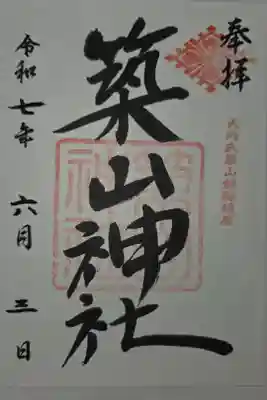 奉拝
築山神社
令和七年 六月 三日